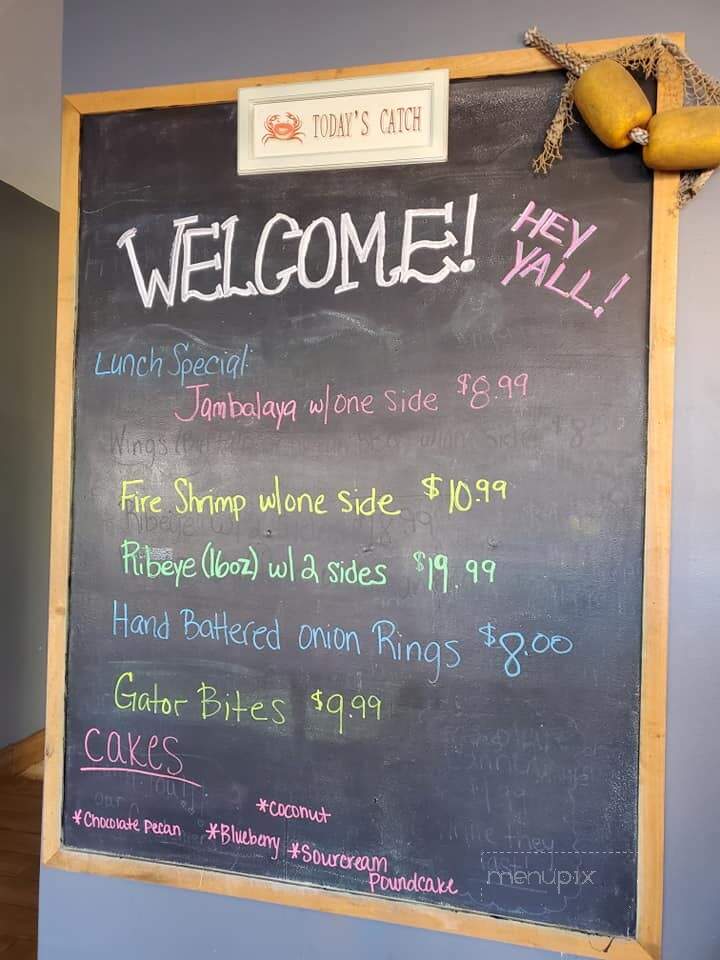 TODAY'S CATCH
WELCOME!
HEY
YALL!
Lunch Special:
Jambalaya w/one side $8.99
Fire Shrimp w/one side $10.99
Ribeye (16oz) w/2 sides $19.99
Hand Battered onion Rings $8.00
Gator Bites $9.99
CAKES
*coconut
*Chocolate pecan *Blueberry *Sourcream
Poundcake
menupix